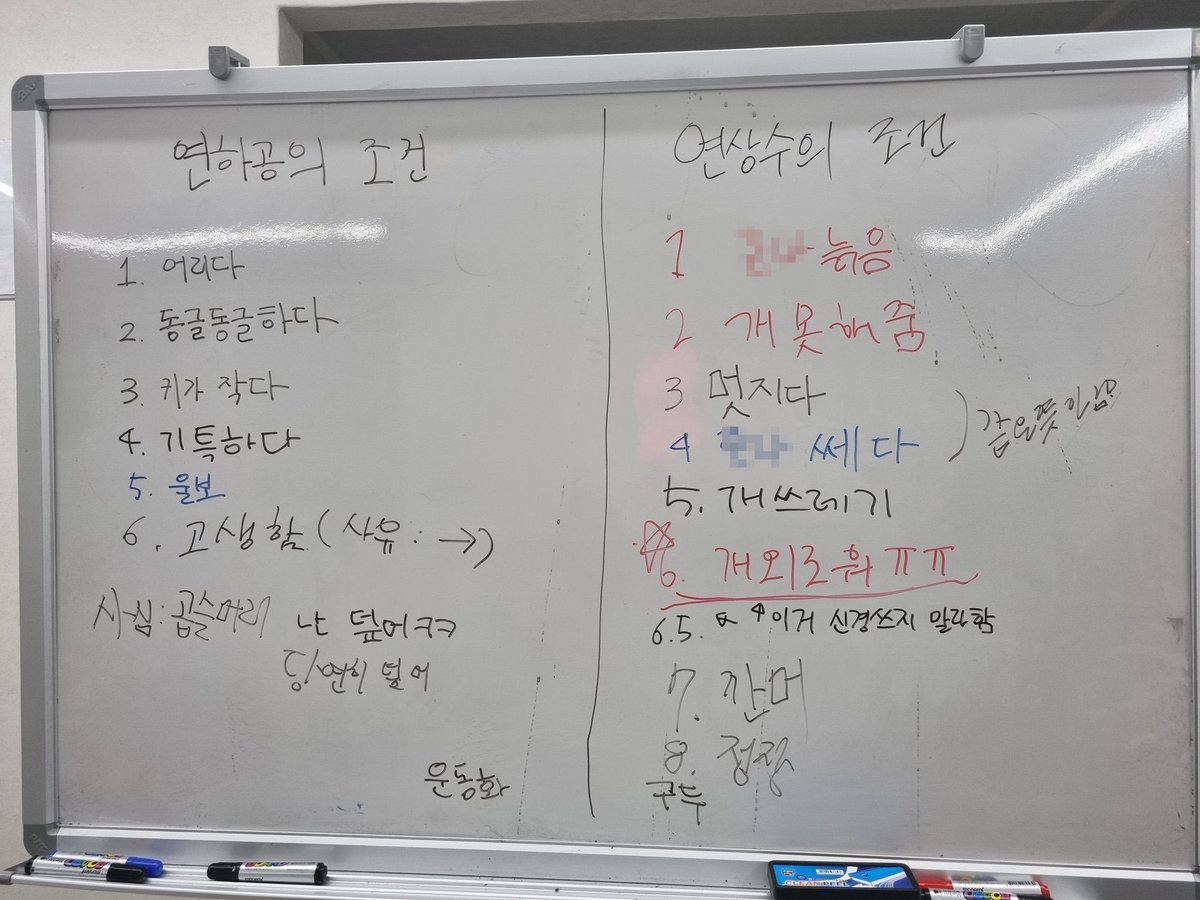 연하공의 조건
1. 어리다
2. 동글동글하다
3. 키가 작다
4. 기특하다
5. 울보
6. 고생함 (사유 : →)
곱슬머리
난 덮어ㅋㅋ
당연히 덮어
운동화
연상수의 조건
1 늙음
2 개못해줌
3 멋지다
4 쎄다
) 같은뜻 아님
5. 개쓰레기
☆6. 개외로워ㅠㅠ
6.5. 이거 신경쓰지 말라함
7. 깐머
8. 정장
구두
CLEAN